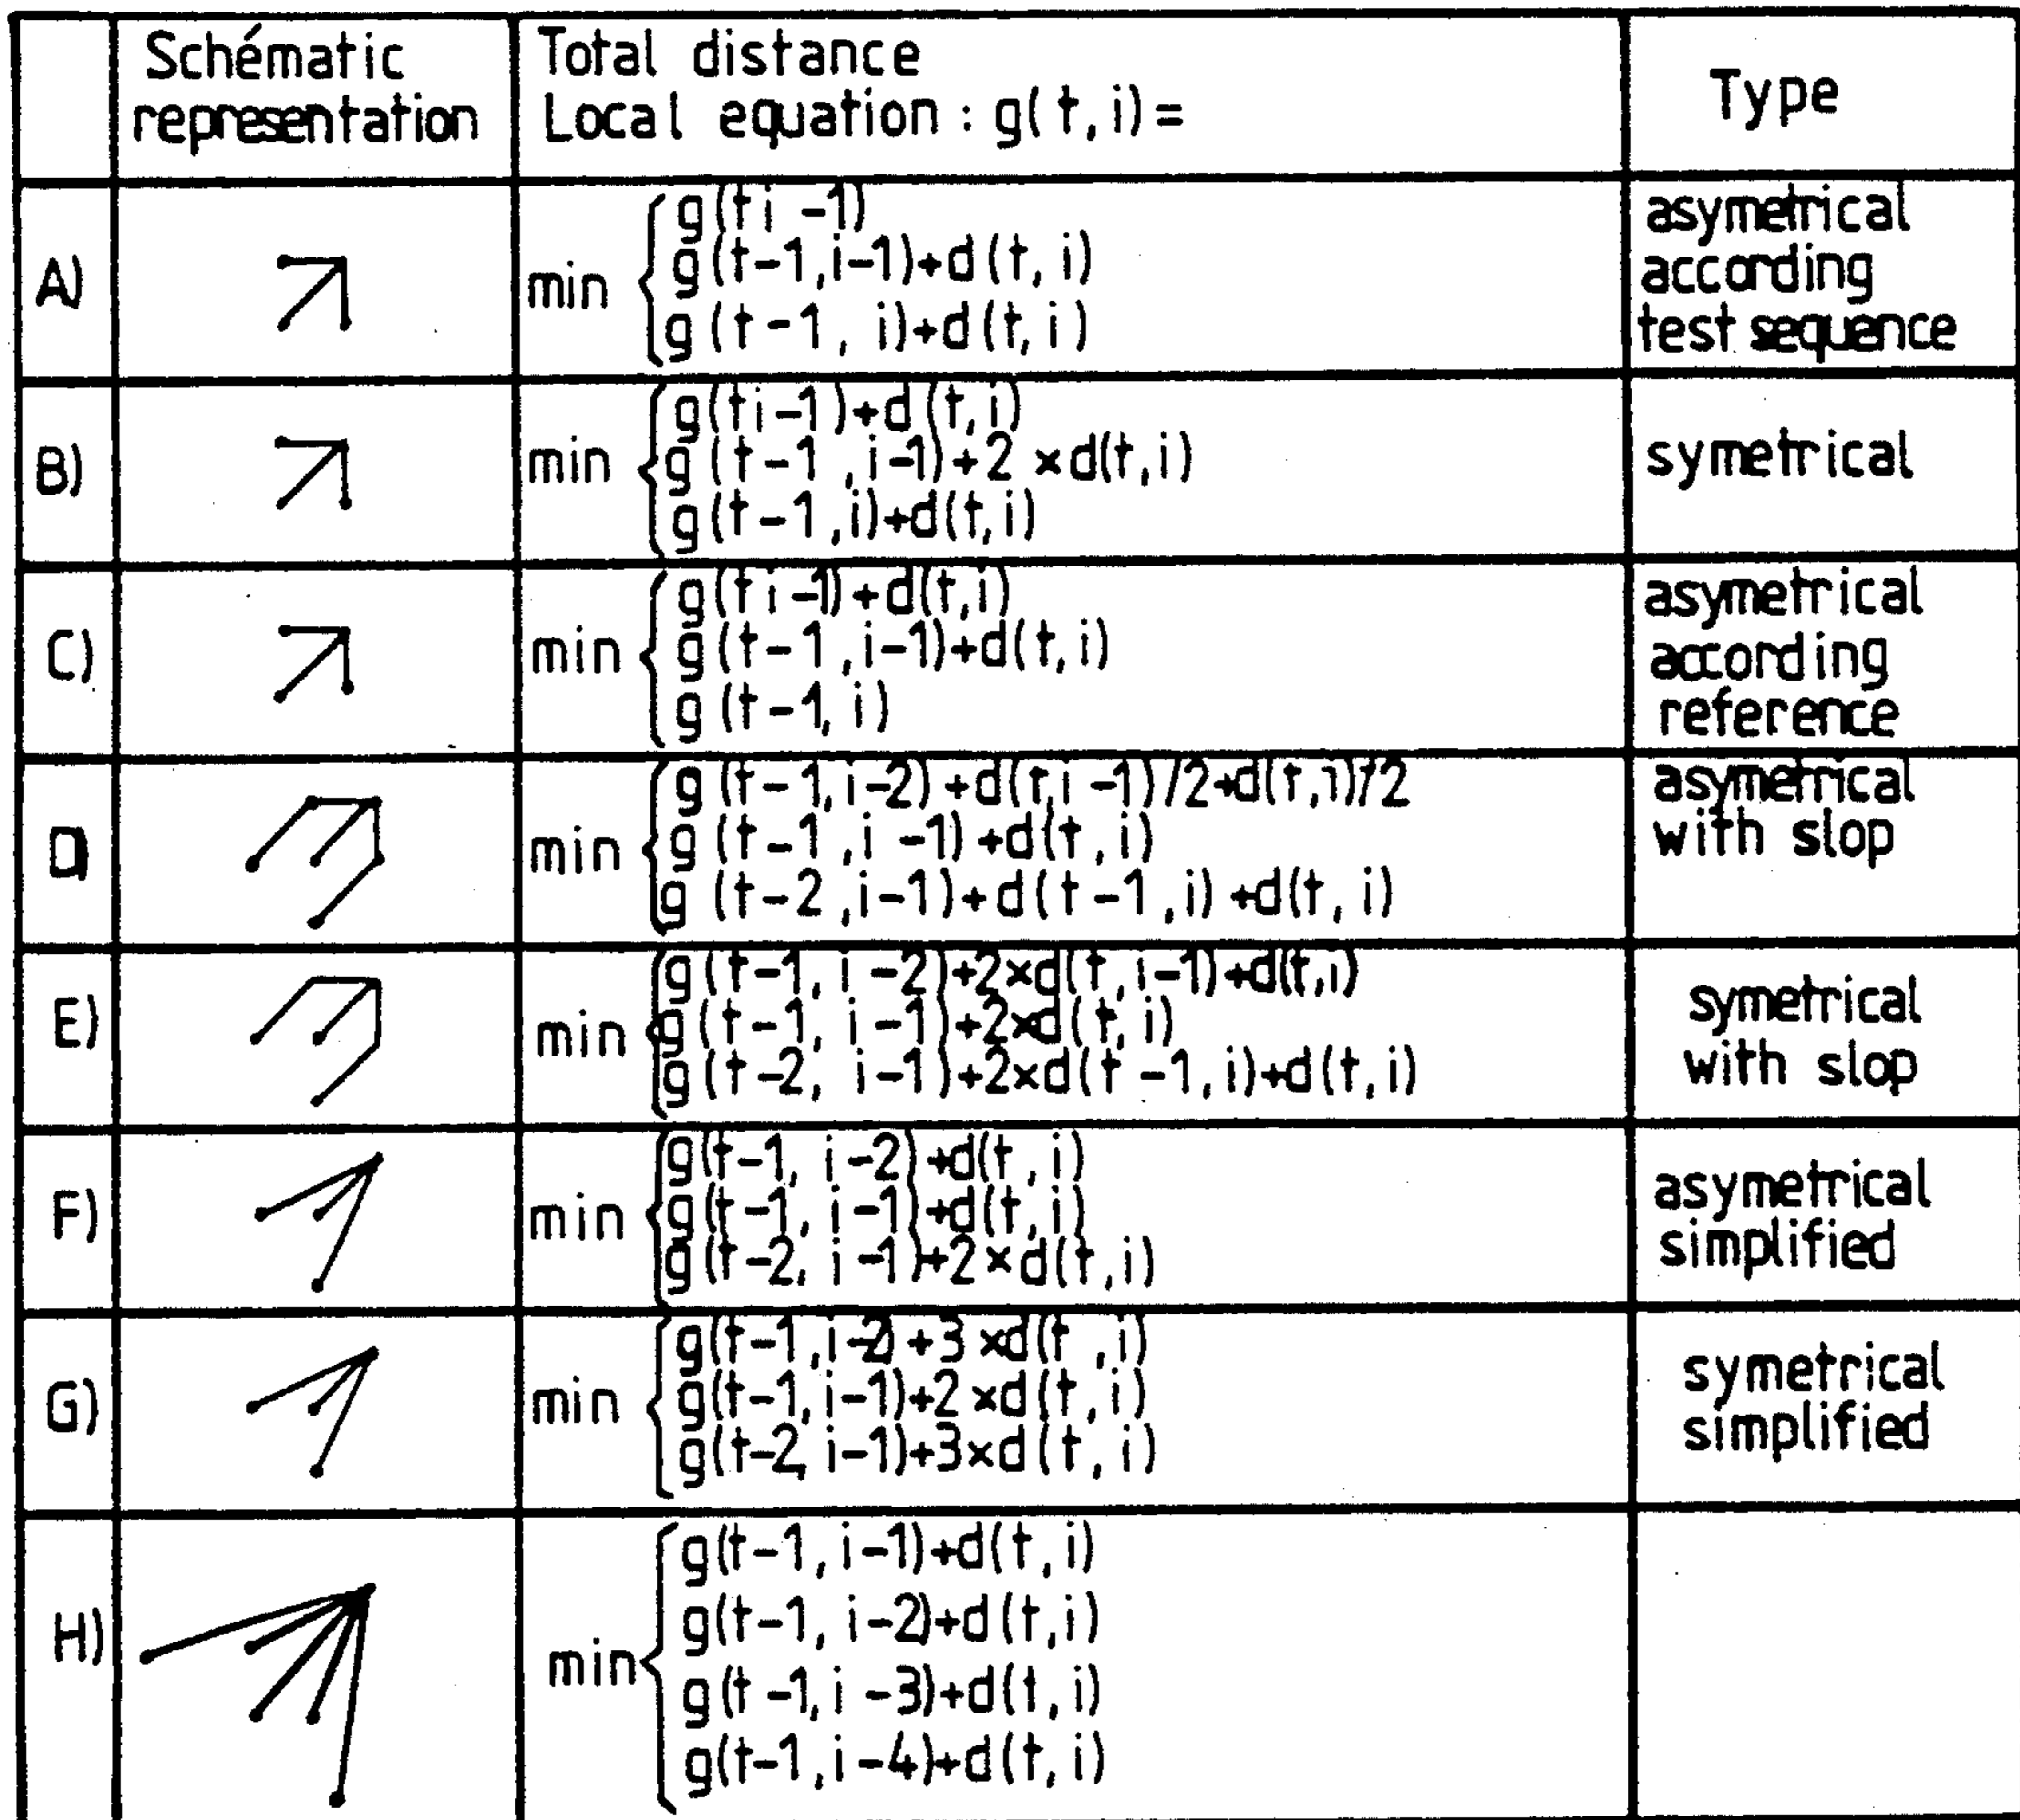 Schématic
representation
Total distance
Local equation : g(t,i)=
Type
A)
min
g(ti -1)
g(t-1,i-1)+d(t, i)
g(t-1, i)+d(t, i)
asymetrical
according
test sequence
B)
min
g(ti-1)+d(t,i)
g(t-1,i-1)+2×d(t,i)
g(t-1,i)+d(t,i)
symetrical
C)
min
g(ti-1)+d(t,i)
g(t-1,i-1)+d(t,i)
g(t-1, i)
asymetrical
according
reference
D
min
g(t-1,i-2)+d(t,i-1)/2+d(t,1)/2
g(t-1,i-1)+d(t,i)
g(t-2,i-1)+d(t-1,i)+d(t, i)
asymetrical
with slop
E)
min
g(t-1, i-2)+2×d(t,i-1)+d(t,i)
g(t-1, i-1)+2×d(t,i)
g(t-2, i-1)+2×d(t-1,i)+d(t,i)
symetrical
with slop
F)
min
g(t-1, i-2)+d(t, i)
g(t-1, i-1)+d(t,i)
g(t-2, i-1)+2×d(t,i)
asymetrical
simplified
G)
min
g(t-1,i-2)+3×d(t,i)
g(t-1,i-1)+2×d(t,i)
g(t-2, i-1)+3×d(t, i)
symetrical
simplified
H)
min
g(t-1, i-1)+d(t, i)
g(t-1, i-2)+d(t,i)
g(t-1, i-3)+d(t, i)
g(t-1, i-4)+d(t, i)